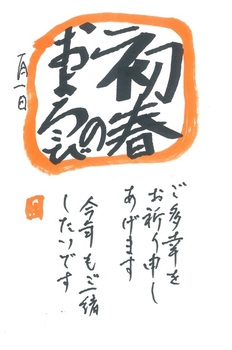 初春の
およろこび
一月一日
ご多幸を
お祈り申し
あげます
今年もご一緒
したいです